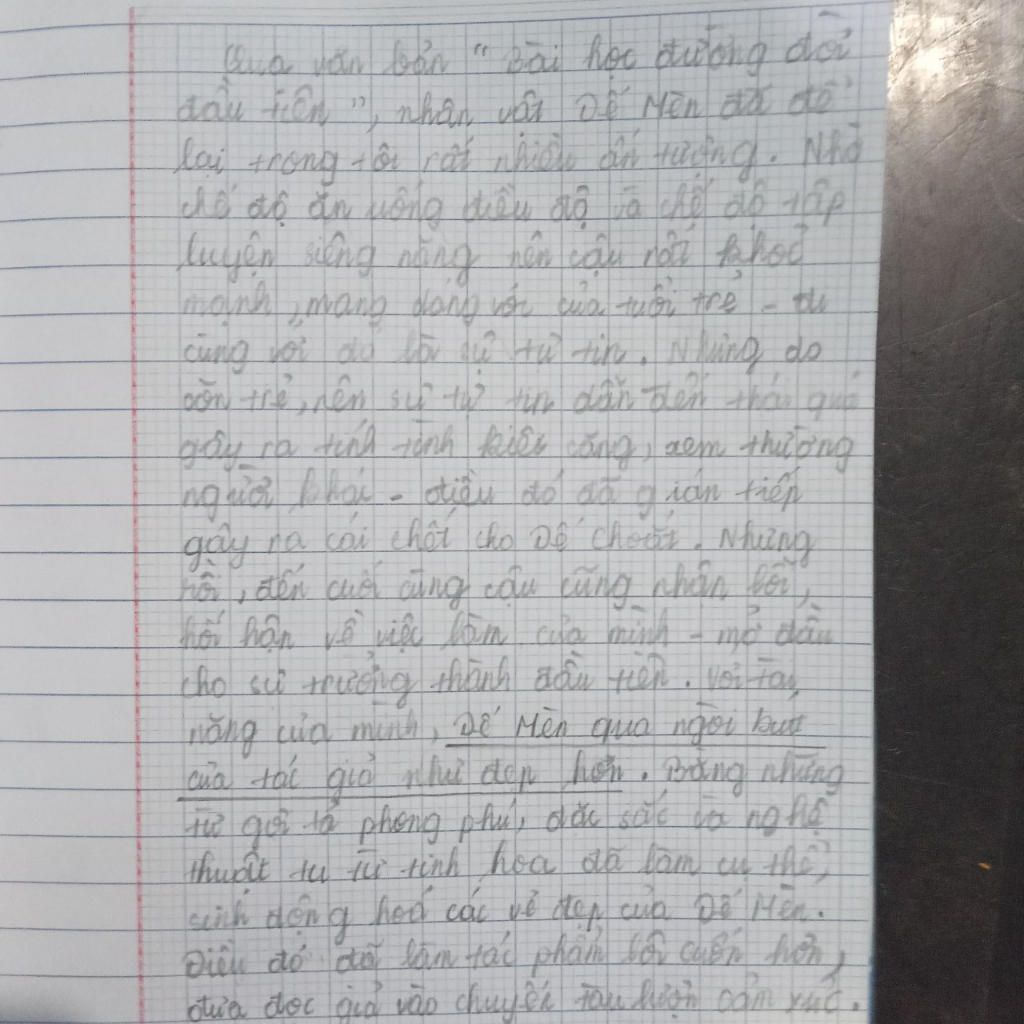 Qua văn bản "Bài học đường đời
đầu tiên", nhân vật Dế Mèn đã để
lại trong tôi rất nhiều ấn tượng. Nhờ
chế độ ăn uống điều độ và chế độ tập
luyện siêng năng nên cậu rất khoẻ
mạnh, mang dáng vóc của tuổi trẻ - đi
cùng với đó là sự tự tin. Nhưng do
còn trẻ, nên sự tự tin dẫn đến thái quá
gây ra tính tình kiêu căng, xem thường
người khác - điều đó đã gián tiếp
gây ra cái chết cho Dế Choắt. Nhưng
rồi, đến cuối cùng cậu cũng nhận lỗi,
hối hận về việc làm của mình - mở đầu
cho sự trưởng thành đầu tiên. Với tài
năng của mình, Dế Mèn qua ngòi bút
của tác giả như đẹp hơn. Bằng những
từ gợi tả phong phú, đặc sắc và nghệ
thuật tu từ tinh hoa đã làm cụ thể,
sinh động hoá các vẻ đẹp của Dế Mèn.
Điều đó đã làm tác phẩm lôi cuốn hơn,
đưa đọc giả vào chuyến tàu lượn cảm xúc.